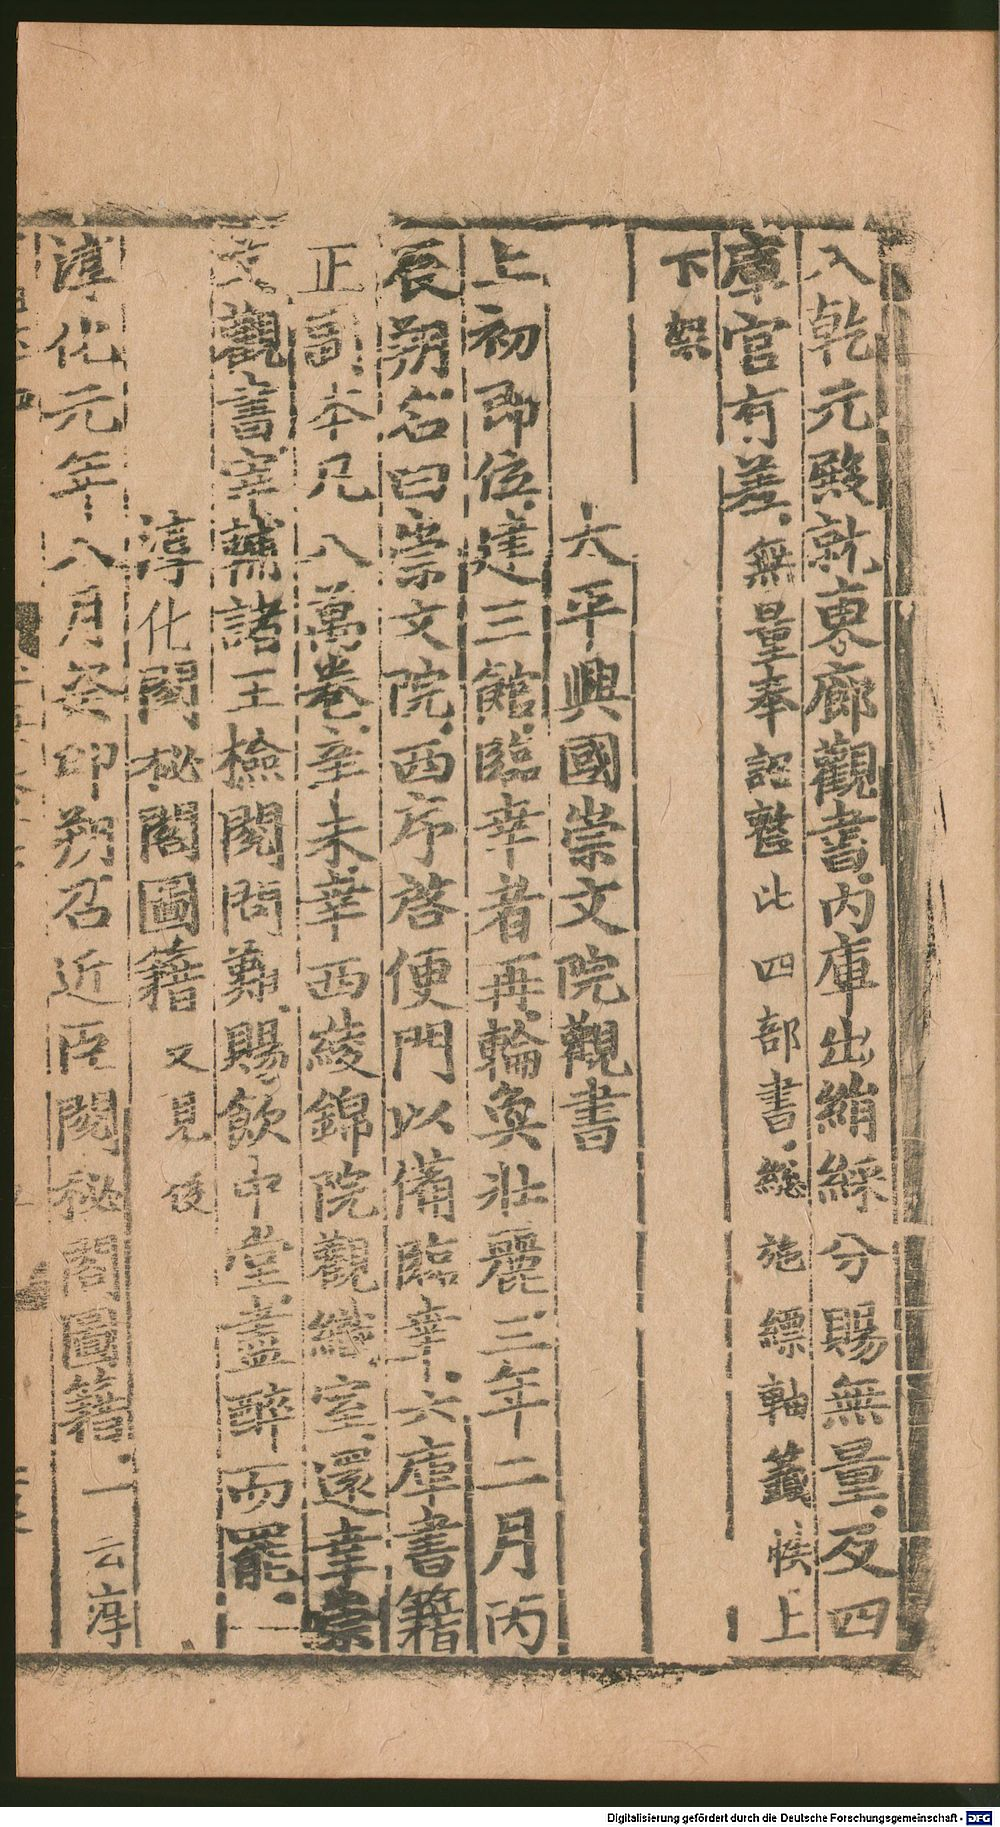 入乾元殿就東廊觀書内庫出絹綵分賜無量及四
庫官有差無量奉詔整比四部書總施縹軸籤帙上
下架
太平興國崇文院觀書
上初即位建三館臨幸者再輪奐壯麗三年二月丙
辰朔名曰崇文院西序啓便門以備臨幸六庫書籍
正副本凡八萬卷辛未幸西綾錦院觀織室還幸崇
文觀書宰輔諸王檢閱問難賜飲中堂盡醉而罷一
淳化閣秘閣圖籍又見後
淳化元年八月癸卯朔召近臣閱秘閣圖籍一云淳
Digitalisierung gefördert durch die Deutsche Forschungsgemeinschaft - DFG